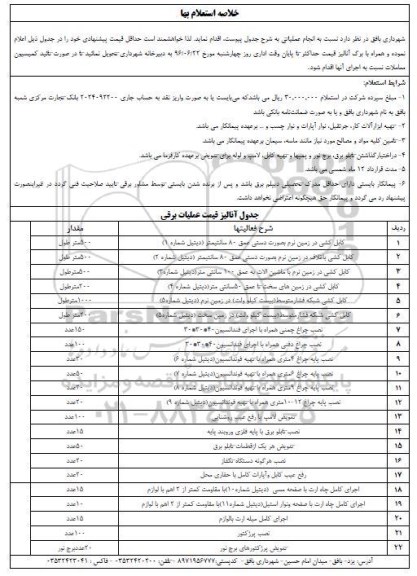 خلاصه استعلام بها
شهرداری بافق در نظر دارد نسبت به انجام عملیاتی به شرح جدول پیوست، اقدام نماید. لذا خواهشمند است حداقل قیمت پیشنهادی خود را در جدول ذیل اعلام
نموده و همراه با برگ آنالیز قیمت حداکثر تا پایان وقت اداری روز چهارشنبه مورخ ۹۶/۰۶/۲۲ به دبیرخانه شهرداری تحویل نمایید تا در صورت تائید کمیسیون
معاملات نسبت به اجرای آنها اقدام شود.
شرایط استعلام:
۱- مبلغ سپرده شرکت در استعلام ۳۰.۰۰۰.۰۰۰ ریال می باشدکه می‌بایست یا به صورت واریز نقد به حساب جاری بانک تجارت مرکزی شعبه
بافق به نام شهرداری بافق و یا به صورت ضمانت‌نامه بانکی باشد
۲- تهیه ابزارآلات کار، جرثقیل، نوار آپارات و نوار چسب و ... برعهده پیمانکار می باشد.
۳- تامین کلیه مواد و مصالح مورد نیاز مانند ماسه، سیمان برعهده پیمانکار می باشد.
۴- دراختیارگذاشتن تابلو برق، برج نور و پمپها و تهیه کابل، لامپ و لوله برای تعویض برعهده کارفرما می باشد
۵- مدت قرارداد ۱۲ ماه شمسی می باشد.
۶- پیمانکار بایستی دارای حداقل مدرک تحصیلی دیپلم برق باشد و پس از برنده شدن بایستی توسط مشاور برقی تایید صلاحیت فنی گردد در غیراینصورت
پیشنهاد رد می گردد و پیمانکار حق هیچگونه اعتراضی نخواهد داشت.
جدول آنالیز قیمت عملیات برقی
ردیف شرح فعالیتها مقدار
۱ کابل کشی در زمین نرم بصورت دستی عمق ۸۰ سانتیمتر (دیتیل شماره ۱) ۵۰۰متر طول
۲ کابل کشی باغلاف در زمین نرم بصورت دستی عمق ۸۰ سانتیمتر (دیتیل شماره ۲) ۵۰۰متر طول
۳ کابل کشی در زمین نرم با ماشین آلات به عمق ۱۰۰ سانتی متر(دیتیل شماره۳)
۴ کابل کشی در زمین های سخت تا عمق ۵۰سانتی متر(دیتیل شماره ۴)
۵ کابل کشی شبکه فشارمتوسط(بیست کیلو ولت) در زمین نرم (دیتیل شماره۵) ۱۰۰۰مترطول
۶ کابل کشی شبکه فشار متوسط(بیست کیلو ولت) در زمین سخت (دیتیل شماره۵)
۷ نصب چراغ چمنی همراه با اجرای فنداسیون ۳۰*۳۰*۴۰ ۱۵۰عدد
۸ نصب چراغ دفنی همراه با اجرای فنداسیون ۳۰*۳۰*۴۰ ۱۰۰عدد
۹ نصب پایه چراغ ۴متری همراه با تهیه فونداسیون(دیتیل شماره ۶)
۱۰ نصب پایه چراغ ۶متری همراه با تهیه فونداسیون(دیتیل شماره ۷)
۱۱ نصب پایه چراغ ۹متری همراه با تهیه فونداسیون(دیتیل شماره ۸)
۱۲ نصب پایه چراغ ۱۲-۱۰متری همراه با تهیه فونداسیون(دیتیل شماره ۹)
۱۳ تعویض لامپ یا رفع عیب روشنایی
۱۴ نصب تابلو برق با پایه فلزی ورویند پایه ۱۵عدد
۱۵ تعویض هر یک ازقطعات تابلو برق
۱۶ نصب هرگونه دستگاه تکفاز
۱۷ رفع عیب کابل وآپارات کابل با حفاری محل
۱۸ اجرای کامل چاه ارت با صفحه مسی (دیتیل شماره۱۰)با مقاومت کمتر از ۲ اهم با لوازم ۱۵عدد
۱۹ اجرای کامل چاه ارت با صفحه ونوار استیل(دیتیل شماره۱۰)با مقاومت کمتر از ۲ اهم با لوازم
۲۰ اجرای کامل میله ارت بالوازم ۱۵عدد
۲۱ نصب پرژکتور ۱۰۰عدد
۲۲ تعویض پرژکتورهای برج نور
آدرس: یزد- بافق- میدان امام حسین- شهرداری بافق کدپستی:۸۹۷۱۹۵۶۷۷۷ -تلفن: ۰۳۵۳۲۴۲۰۲۰۰ - فاکس: